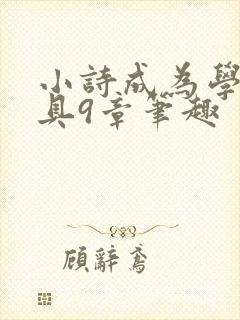 小詩成為學
具9章筆趣
顧辭鳶